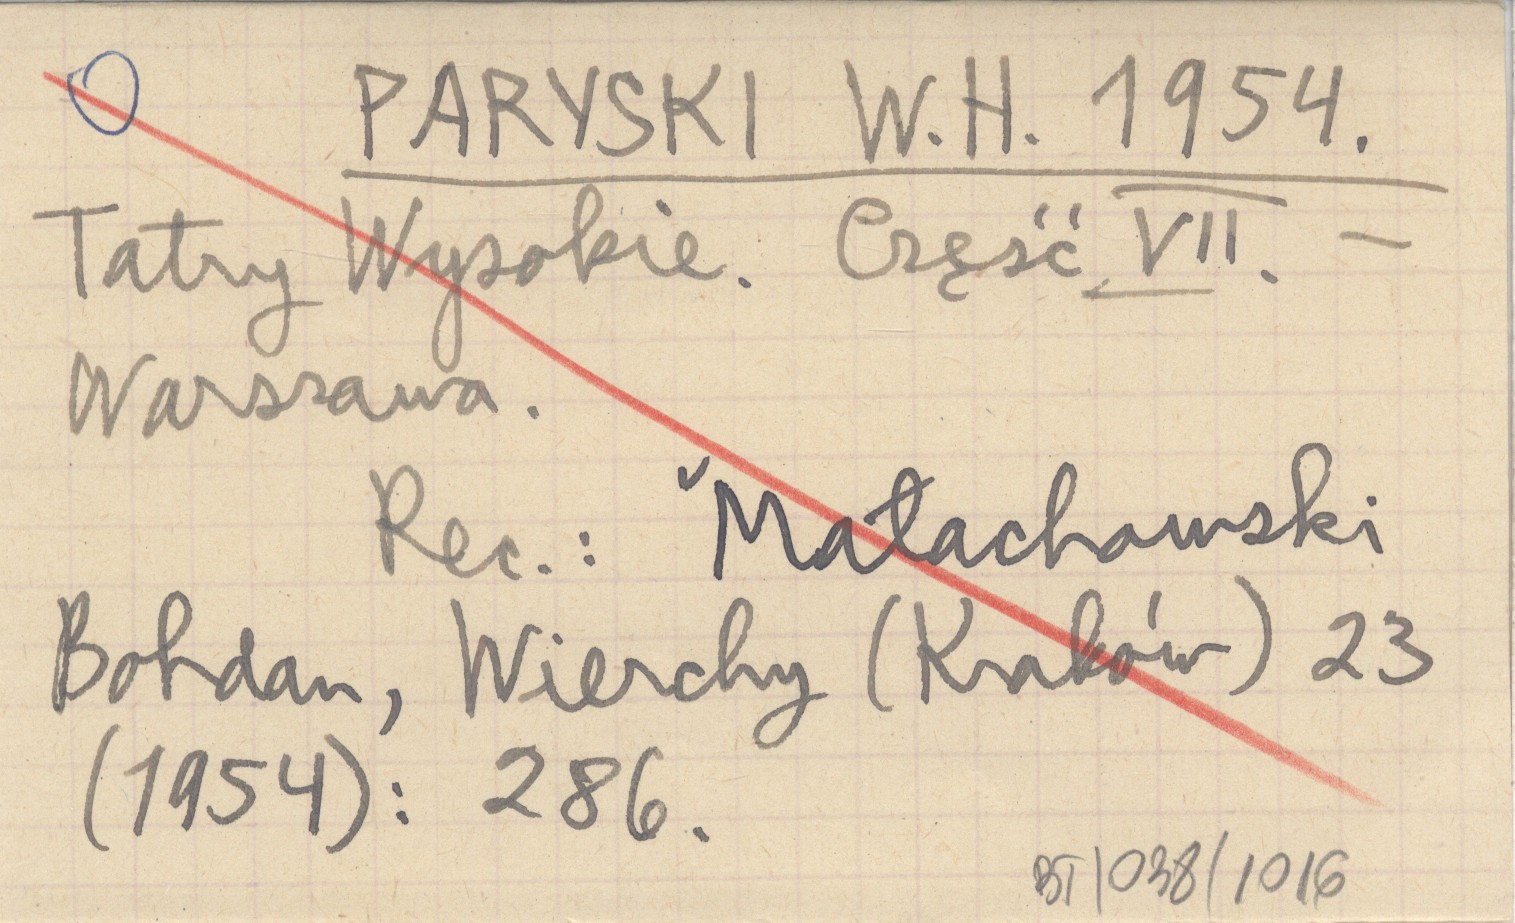 PARYSKI W.H. 1954.
Tatry Wysokie. Część VII. –
Warszawa.
Rec.: Małachowski
Bohdan, Wierchy (Kraków) 23
(1954): 286.
BT/038/1016